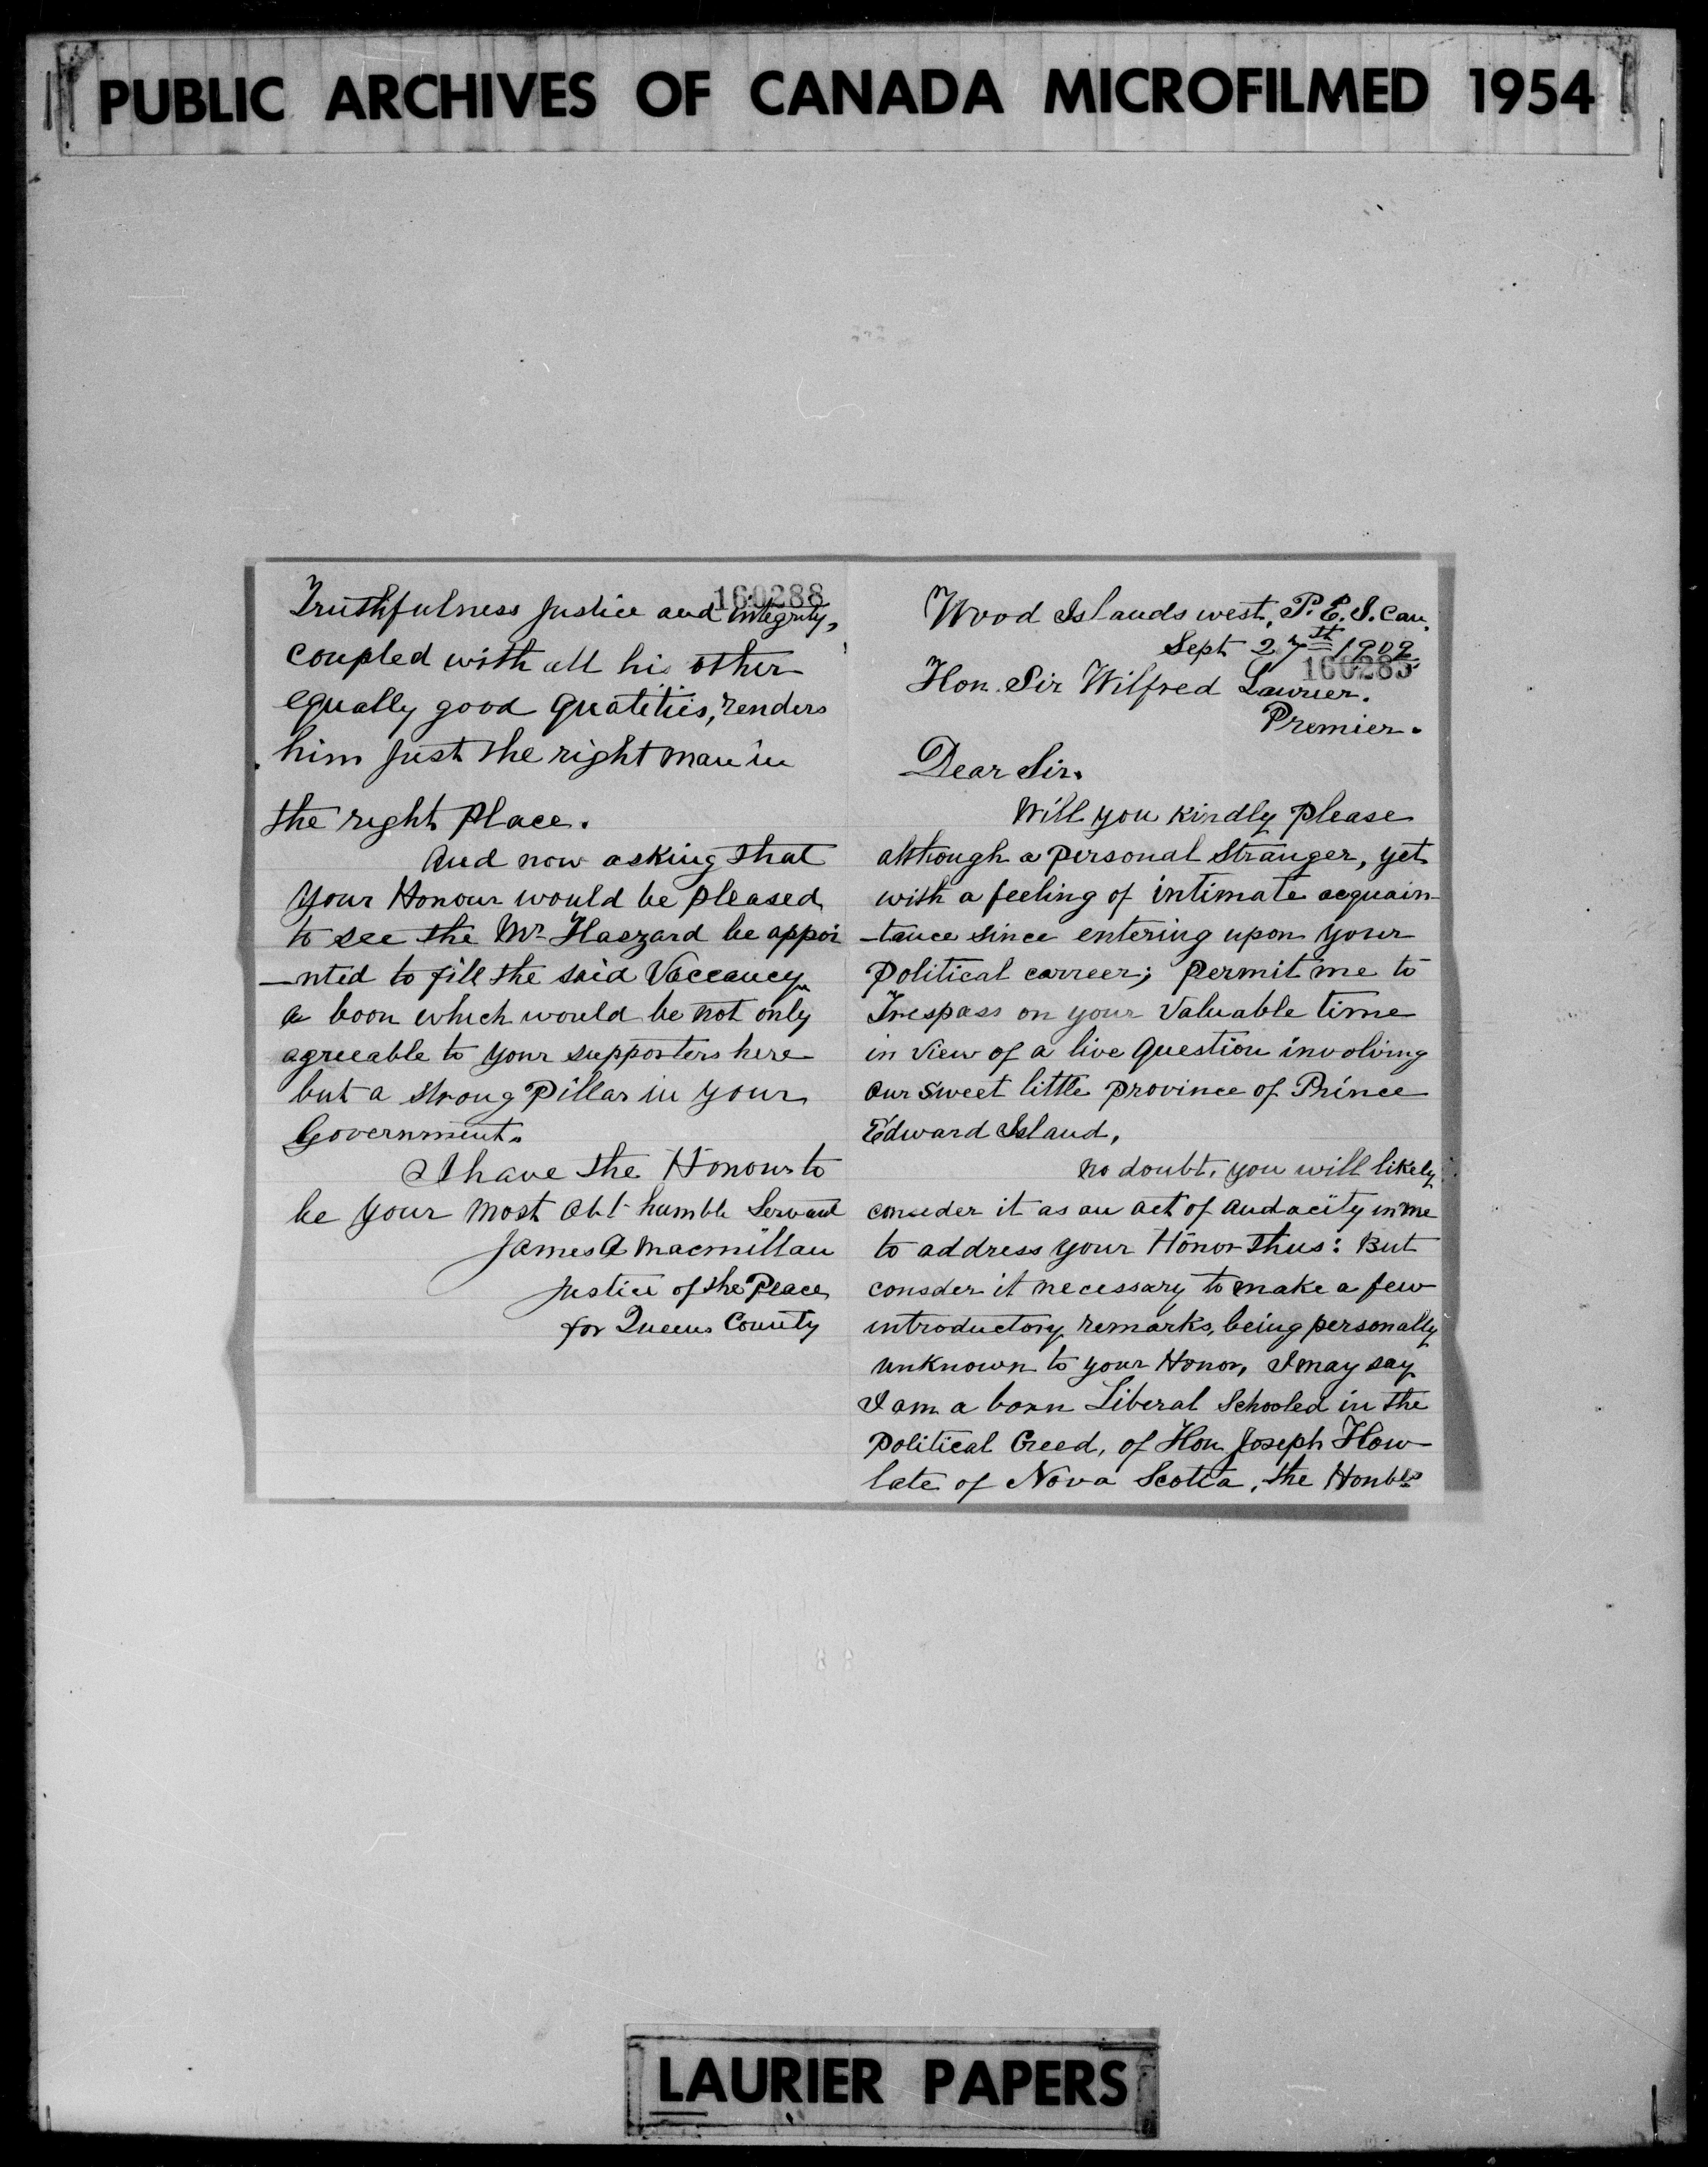 PUBLIC ARCHIVES OF CANADA MICROFILMED 1954
160288
Truthfulness Justice and integrity,
coupled with all his other
equally good quatities, renders
him Just the right man in
the right Place.
And now asking that
your Honour would be pleased
to see the Mr Haszard be appoi
-nted to fill the said Vaccancy
a boon which would be not only
agreeable to your supporters here
but a strong Pillar in your
Government.
I have the Honour to
be your most Obt humble Servant
James A Macmillan
Justice of the Peace
for Queens County
Wood Islands west, P.E.I. Can.
Sept 27th 1909
160285
Hon. Sir Wilfred Laurier.
Premier.
Dear Sir.
Will you kindly please
although a personal Stranger, yet
with a feeling of intimate acquain-
-tance since entering upon your
Political carreer; permit me to
Trespass on your Valuable time
in view of a live Question involving
our sweet little province of Prince
Edward Island,
No doubt, you will likely
conseder it as an act of audacity in me
to address your Honor thus: But
consder it necessary to make a few
introductory remarks, being personally
unknown to your Honor, I may say
I am a born Liberal Schooled in the
Political Creed, of Hon Joseph How
late of Nova Scotia, the Honbles
LAURIER PAPERS